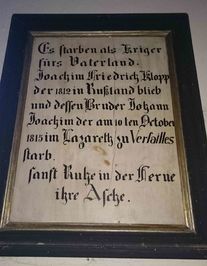 Es starben als Kriger
fürs Vaterland.
Joachim Friedrich Klopp
der 1812 in Rußland blieb
und dessen Bruder Johann
Joachim der am 10 ten October
1815 im Lazareth zu Versailles
starb.
sanft Ruhe in der Ferne
ihre Asche.